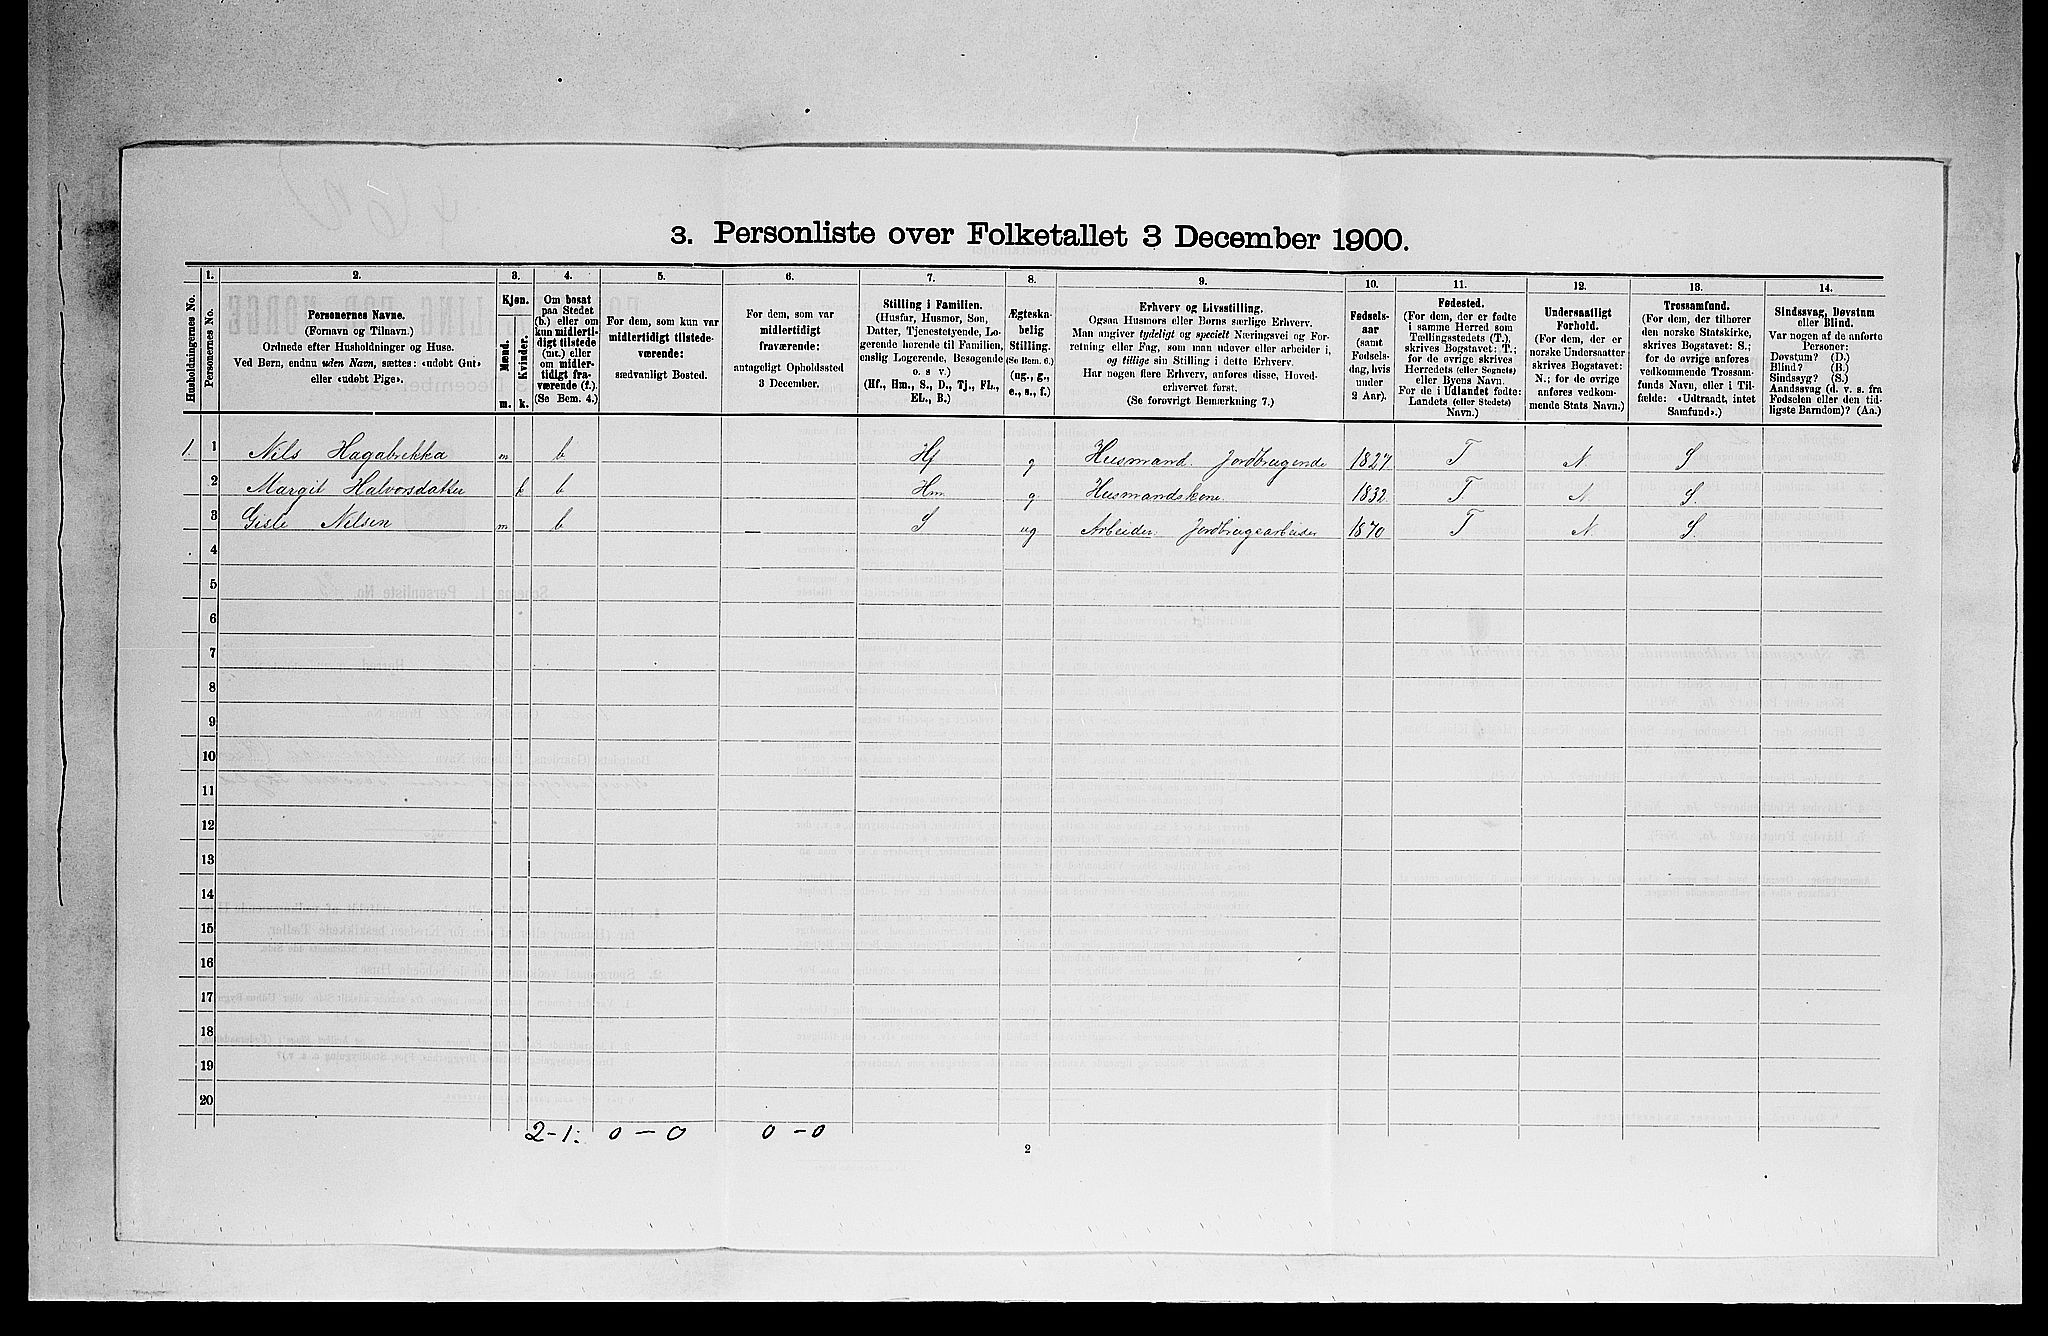 3. Personliste over Folketallet 3 December 1900.
Husholdningernes No.
1.
Personernes No.
2.
Personernes Navne.
(Fornavn og Tilnavn.)
Ordnede efter Husholdninger og Huse.
Ved Børn, endnu uden Navn, sættes: «udøbt Gut»
eller «udøbt Pige».
3.
Kjøn.
Mænd.
Kvinder.
m.
k.
4.
Om bosat
paa Stedet
(b.) eller om
kun midlerti-
digt tilstede
(mt.) eller
om midler-
tidigt fra-
værende (f.).
(Se Bem. 4.)
5.
For dem, som kun var
midlertidigt tilstede-
værende:
sædvanligt Bosted.
6.
For dem, som var
midlertidigt
fraværende:
antageligt Opholdssted
3 December.
7.
Stilling i Familien.
(Husfar, Husmor, Søn,
Datter, Tjenestetyende, Lo-
gerende hørende til Familien,
enslig Logerende, Besøgende
o. s v.)
(Hf., Hm., S., D., Tj., FL.,
EL., B.)
8.
Ægteska-
belig
Stilling.
(Se Bem. 6.)
(ug., g.,
e., s., f.)
9.
Erhverv og Livsstilling.
Ogsaa Husmors eller Børns særlige Erhverv.
Man angiver tydeligt og specielt Næringsvei og For-
retning eller Fag, som man udøver eller arbeider i,
og tillige sin Stilling i dette Erhverv.
Har nogen flere Erhverv, anføres disse, Hoved-
erhvervet først.
(Se forøvrigt Bemærkning 7.)
10.
Fødsels-
aar
(samt
Fødsels-
dag, hvis
under
2 Aar).
11.
Fødested.
(For dem, der er fødte
i samme Herred som
Tællingsstedets (T.),
skrives Bogstavet: T.;
for de øvrige skrives
Herredets (eller Sognets)
eller Byens Navn.
For de i Udlandet fødte:
Landets (eller Stedets)
Navn.)
12.
Undersaatligt
Forhold.
(For dem, der er
norske Undersaatter
skrives Bogstavet:
N.; for de øvrige
anføres vedkom-
mende Stats Navn.)
13.
Trossamfund.
(For dem, der tilhører
den norske Statskirke,
skrives Bogstavet: S.;
for de øvrige anføres
vedkommende Trossam-
funds Navn, eller i Til-
fælde: «Udtraadt, intet
Samfund».)
14.
Sindssvag, Døvstum
eller Blind.
Var nogen af de anførte
Personer:
Døvstum? (D.)
Blind? (B.)
Sindssyg? (S.)
Aandssvag (d. v. s. fra
Fødselen eller den tid-
ligste Barndom)? (Aa.)
1. 1 Nils Hagabrekka m b Hf g Husmand. Jordbrugende 1827 T N S
2 Margit Halvorsdatter k b Hm g Husmandskone 1832 T N S.
3 Gisle Nilsen m b S ug Arbeider. Jordbrugsarbeider 1870 T N. S.
4
5
6
7
8
9
10
11
12
13
14
15
16
17
18
19
20
2-1: 0-0 0-0
2